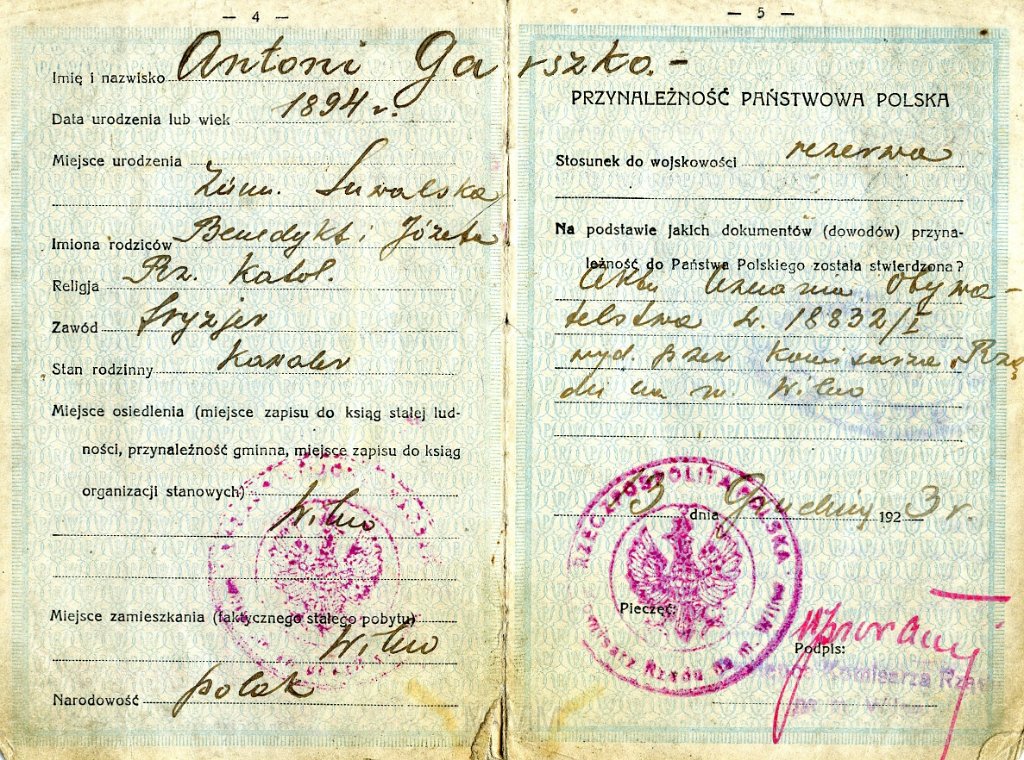 — 4 —
Imię i nazwisko Antoni Garszko.-
Data urodzenia lub wiek 1894 r.
Miejsce urodzenia
Suwalska
Imiona rodziców Benedykt i Józefa
Religja Rz. Katol.
Zawód fryzjer
Stan rodzinny kawaler
Miejsce osiedlenia (miejsce zapisu do ksiąg stałej lud-
ności, przynależność gminna, miejsce zapisu do ksiąg
organizacji stanowych)
Wilno
Miejsce zamieszkania (faktycznego stałego pobytu)
Wilno
Narodowość polak
— 5 —
PRZYNALEŻNOŚĆ PAŃSTWOWA POLSKA
Stosunek do wojskowości rezerwa
Na podstawie jakich dokumentów (dowodów) przyna-
leżność do Państwa Polskiego została stwierdzona?
Aktu Uznania Obywa-
telstwa L. 18832/I
wyd. przez Komisarza Rzą
du na m. Wilno
3 dnia Grudnia 1923 r.
RZECZPOSPOLITA POLSKA
Komisarz Rządu na m. Wilno
Pieczęć:
Podpis:
Komisarza Rządu
na m. Wilno